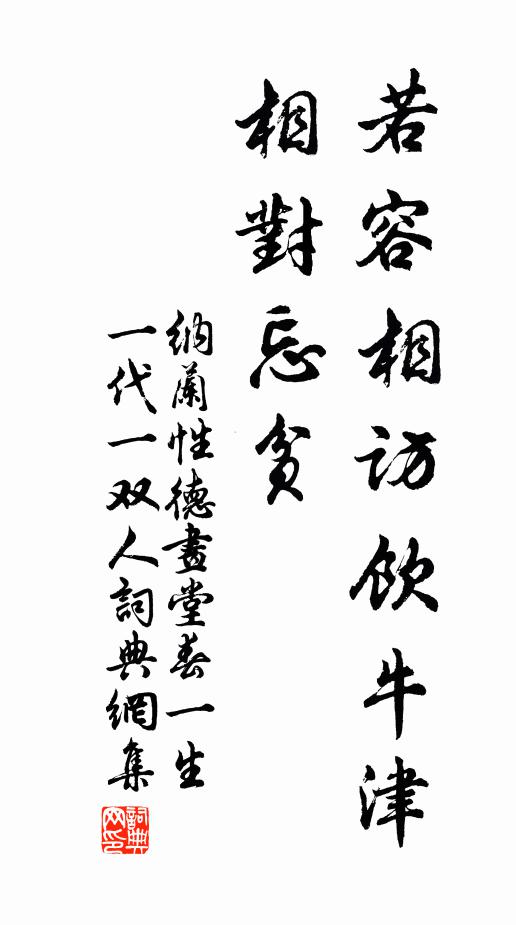 若容相訪飲牛津
相對忘貧
納蘭性德畫堂春一生
一代一双人詞典網集
詞典网印